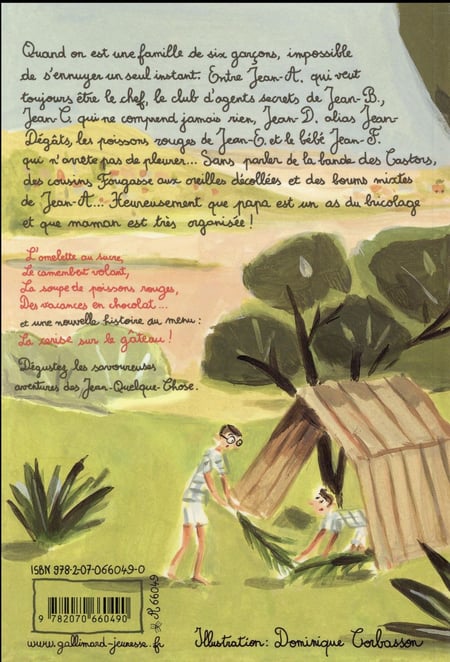 Quand on est une famille de six garçons, impossible
de s'ennuyer un seul instant. Entre Jean-A. qui veut
toujours être le chef, le club d'agents secrets de Jean-B.,
Jean-C. qui ne comprend jamais rien, Jean-D. alias Jean-
Dégâts, les poissons rouges de Jean-E. et le bébé Jean-F.
qui n'arrête pas de pleurer... Sans parler de la bande des Castors,
des cousins Fougasse aux oreilles décollées et des boums mixtes
de Jean-A... Heureusement que papa est un as du bricolage
et que maman est très organisée !
L'omelette au sucre,
Le camembert volant,
La soupe de poissons rouges,
Des vacances en chocolat...
et une nouvelle histoire au menu :
La cerise sur le gâteau !
Dégustez les savoureuses
aventures des Jean-Quelque-Chose.
ISBN 978-2-07-066049-0
9 782070 660490
A 66049
www.gallimard-jeunesse.fr
Illustration : Dominique Corbasson